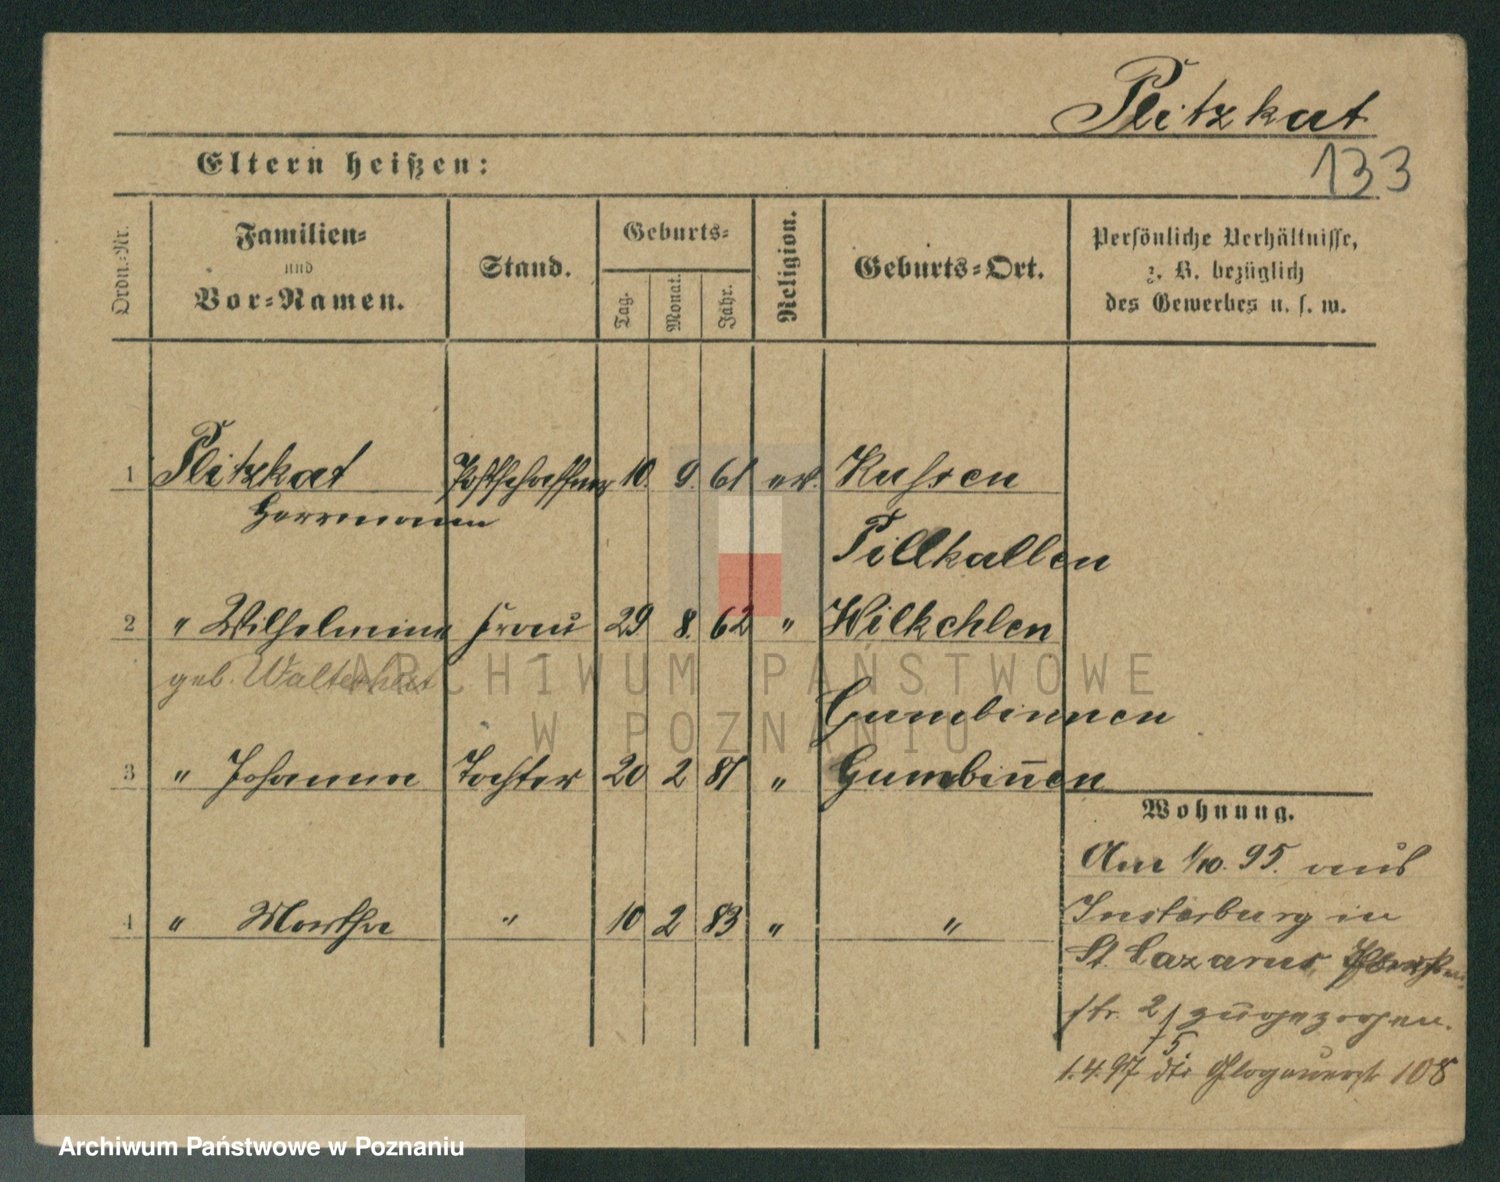 Plitzkat
133
Eltern heißen:
Ordn.-Nr.
Familien-
und
Vor-Namen.
Stand.
Geburts-
Tag.
Monat.
Jahr.
Religion.
Geburts-Ort.
Persönliche Verhältnisse,
z. B. bezüglich
des Gewerbes u. s. w.
1 Plitzkat Postschaffner 10. 9. 61 ev. Kussen
Herrmann
Pillkallen
2 " Wilhelmine Frau 29 8. 62 "
geb.
Gumbinnen
3 " Johanna Tochter 20 2 81 " Gumbin̄en
Wohnung.
Am 1/10. 95. aus
4 " Martha " 10 2 83 " "
Insterburg in
St. Lazarus
str. 2 zugezogen.
5.
1.4.97 Glogauerstr 108
ARCHIWUM PAŃSTWOWE
W POZNANIU
Archiwum Państwowe w Poznaniu